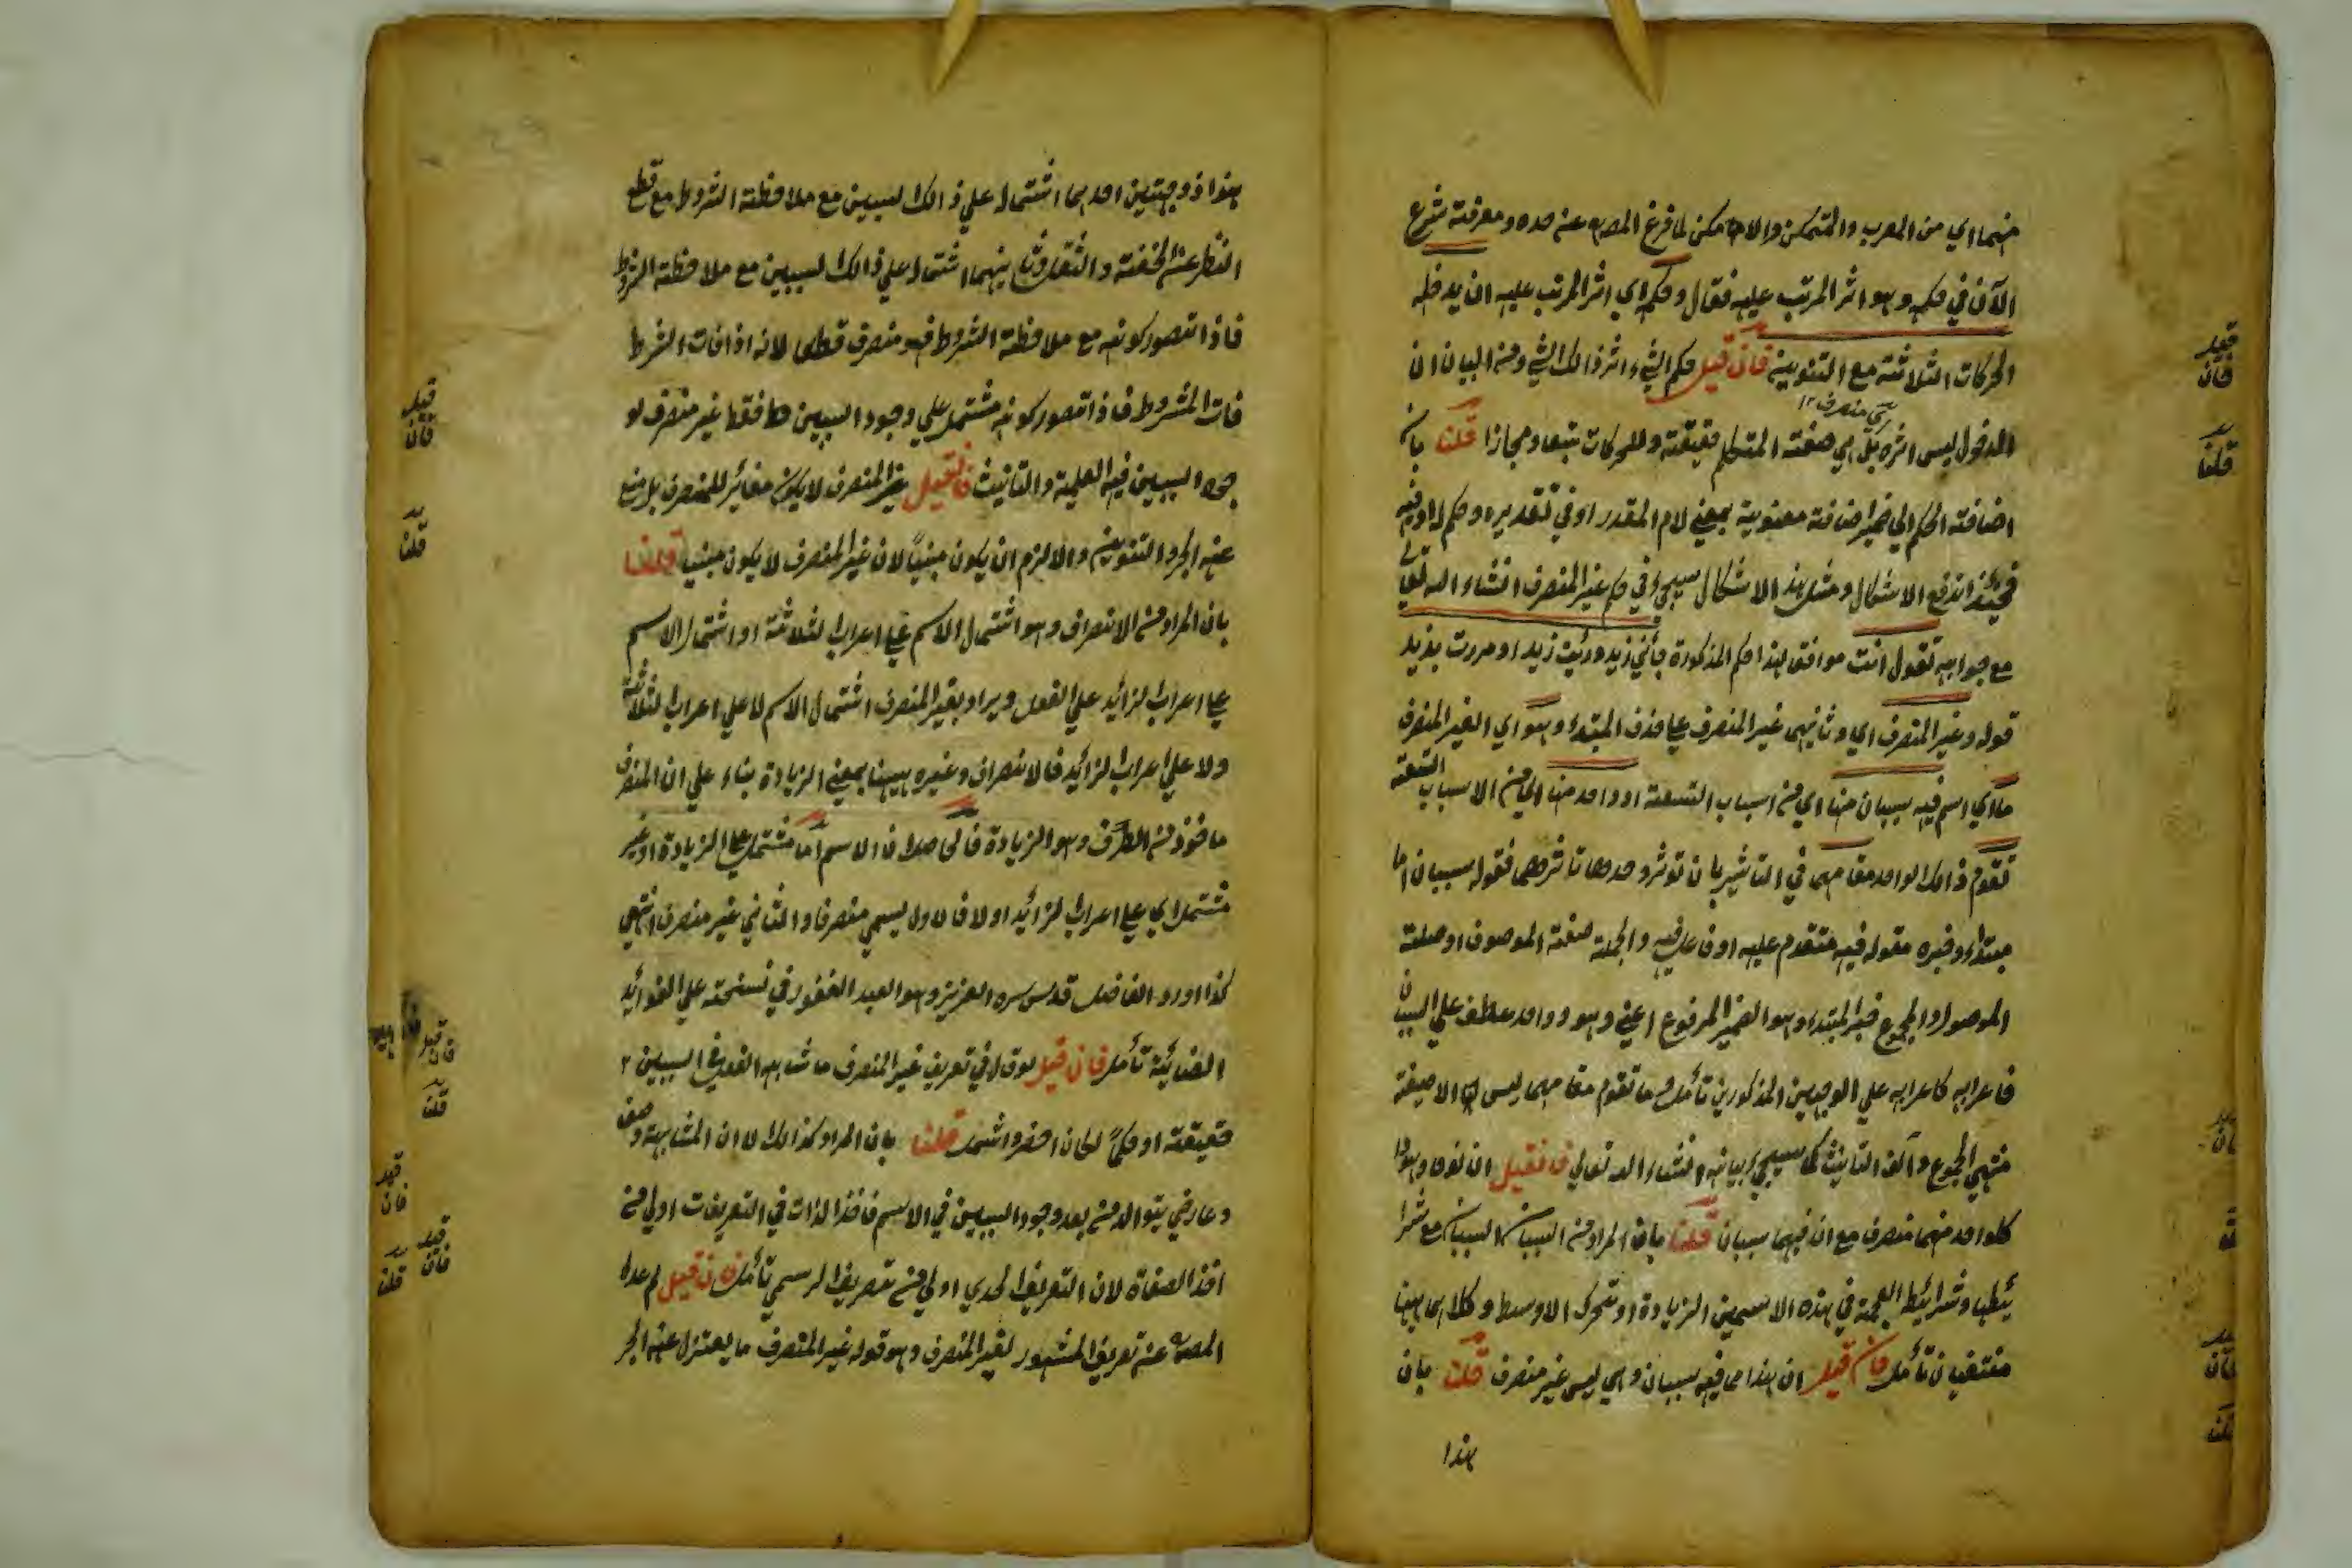 منهما اي من المعرب والمتمكن والامكن لما فرغ المصه عنه حده ومعرفته شرع
الآن في حكمه وهو اثر المرتب عليه فقال وحكمه اي اثر المرتب عليه ان يدخله
الحركات الثلاثة مع التنوين فان قيل حكم الشيء اثر ذالك الشي ومن البيان ان
الدخول ليس اثره بل هي صفته المتكلم حقيقة وللحركات تبعا ومجازا قلنا بان
اي منصرف ١٢
اضافته الحكم الي ضمير اضافته معنوية بمعني لام المقدر او في تقديره وحكم له او فيه
فحينئذ اندفع الاشكال ومثل هذا الاشكال سيجيء في حكم غير المنصرف انشاء الله تعالي
مع جوابه تقول انت موافق لهذا حكم المذكورة جائني زيد ورئيت زيدا ومررت بزيد
قوله وغير المنصرف اي وثانيهما غير المنصرف علي حذف المبتداء وهو اي الغير المنصرف
ما اي اسم فيه سببان منها اي من اسباب التسعة او واحد منها اي من الاسباب التسعة
تقوم ذالك الواحد مقامهما في التاثير بان توثر وحدها تاثرهما فقوله سببان اما
مبتداء وخبره مقوله فيه متقدم عليه او فاعل فيه والجملة صفة الموصوف او صلة
الموصول والمجموع خبر المبتداء وهو الضمير المرفوع اعني وهو وواحد عطف علي السببان
فاعرابه كاعرابه علي الوجهين المذكورين تأمل وما تقوم مقامهما ليس الا صيغة
منتهي الجموع وآلف التانيث كما سيجيء بيانه انشاء الله تعالي فانقيل ان نوحا وهودا
كلواحد منهما منصرف مع ان فيهما سببان قلنا بان المراد من السببان السببان مع شرا
ئيطها وشرائيط العجمة في هذه الاسمين الزيادة او تحرك الاوسط وكلاهما ههنا
منتفيان تأمل فان قيل ان هندا مما فيه سببان وهي ليس غير منصرف قلت بان
هذا
هذا ذو جهتين احدهما اشتمال علي ذالك لسببين مع ملاحظة الشروط مع قطع
النظر عن الخفة والثقل وثانيهما اشتمال علي ذالك لسببين مع ملاحظة الشروط
فاذا تصور كونه مع ملاحظة الشروط فهو منصرف قطعا لانه اذا فات الشرط
فات المشروط فاذا تصور كونه مشتمل علي وجود السببين فقط غير منصرف لو
جود السببين فيه العلمية والتانيث فانقيل غير المنصرف لا يكون مغائر للمنصرف بل منع
عنه الجر والتنوين والا لزم ان يكون مبنياً لان غير المنصرف لا يكون مبنيا قلنا
بان المراد من الانصراف وهو اشتمال الاسم علي اعراب الثلاثة او اشتمال الاسم
علي اعراب الزائيد علي الفعل ويراد بغير المنصرف اشتمال الاسم لا علي اعراب الثلاثة
ولا علي اعراب الزائيد فالانصراف وغيره ههنا بمعني الزيادة بناء علي ان المنصرف
ماخوذ من الصرف وهو الزيادة فالحاصل ان الاسم اما مشتمل علي الزيادة او غير
مشتمل اي علي اعراب الزائيد اولا فالاول يسمي منصرفا والثاني غير منصرف انتهي
كذا اورد الفاضل قدس سره العزيز وهو العبد الغفور في نسخته علي الفوائيد
الضيائية تأمل فان قيل لو قال في تعريف غير المنصرف ما شابه الفعل في السببين
حقيقة او حكماً لكان اخصر واشمل قلنا بان المراد كذالك لا ان المشابهة وصف
وعارضي يتوالد منه بعد وجود السببين في الاسم فاخذ الذات في التعريفات اولي من
اخذ الصفاة لان التعريف الحدي اولي من تعريف الرسمي تأمل فان قيل لم عدل
المصه عن تعريف المشهور لغير المنصرف وهو قوله غير المنصرف ما يعتزل عنه الجر
قيل
فان
قلنا
قيل
فان
قلنا
قيل
فان
قلنا
قيل
فان
قيل
فان
قلنا